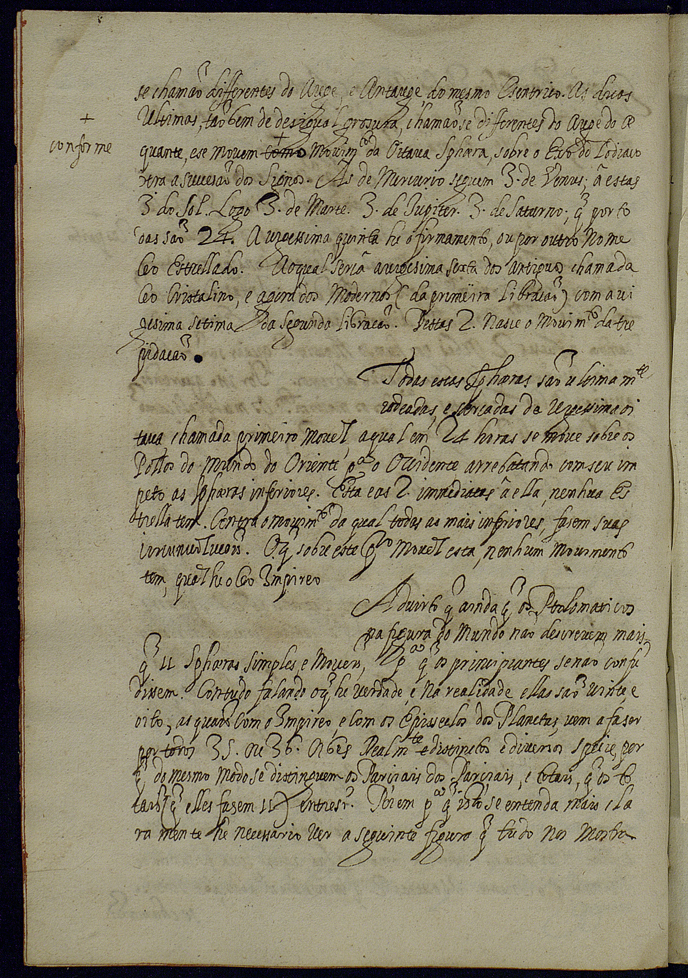 se chamaõ differentes do Auge, e Antauge do mesmo Excentrico. As duas
Ultimas, taõbem de desigual grosura, chamaõse differentes do Auge do æ
+
conforme
quante, e se movem como Movim.to da Octava Sphæra, sobre o Eixo do Zodiaco
contra a successaõ dos Signos. As de Mercurio seguem 3. de Venus; a estas
3. do Sol. Logo 3. de Marte. 3. de Jupiter. 3. de Saturno; q̃ por to
das saõ 24. A uigessima quinta he o firmamento, ou por outro Nome
Ceo Estrellado. Ao qual seria a uigesima sexta dos Antiguos chamada
Ceo Cristalino, e agora dos Modernos (da primeira Libracaõ) com a ui
gesima setima da segunda Libracaõ. Destas 2. Nasce o Movim.to da tre
pidacaõ.
Todas estas Sphæras saõ ultimam.te
rodeadas, e cercadas da Uigessima oi
taua, chamada primeiro Mouel, a qual em 24 horas se moue sobre os
Pollos do Mundo do Oriente p.a o Occidente arrebatando com seu im
peto as Sphæras inferiores. Esta e as 2 immediattas à ella, nenhũa Es
trella tem. Contra o mouim.to da qual todas as mais inferiores, fasem suas
circunuoluções. O q̃ sobre este p.ro Mouel esta, nenhum Mouimento
tem, qual he o Ceo Impireo
Advirto q̃ ainda q̃ os Ptolomaicos
na figura do Mundo naõ descrevem mais
q̃ 11 Sphæras simples, e Moueis, p.a q̃ os principiantes se naõ confũ
dissem. Contudo falando o q̃ he verdade, e na realidade ellas saõ uinte e
oito, as quais com o Impireo, e com os Episcyclos dos Planetas, uem a faser
por todos 35. ou 36. Ceos Realm.te distinctos e diuersos specie, por
q̃ do mesmo modo se distinguem os Parciais dos Parciais, e totais, q̃ os to
tais (q̃ elles fasem 11) entre si. Porem p.a q̃ isto se entenda mais cla
ra mente he necessario uer a seguinte figura q̃ tudo nos mostra